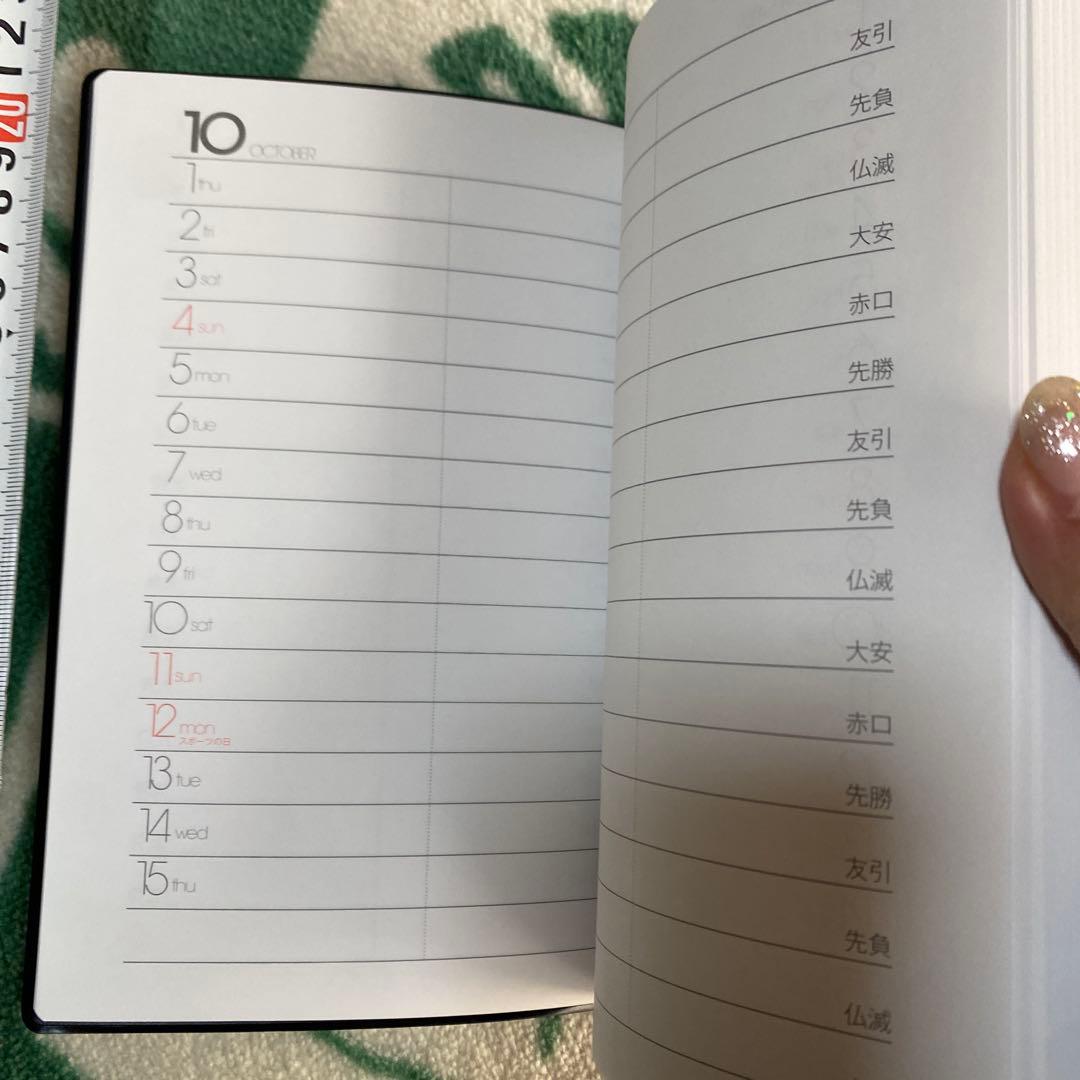 10 OCTOBER
1 thu
2 fri
3 sat
4 sun
5 mon
6 tue
7 wed
8 thu
9 fri
10 sat
11 sun
12 mon
スポーツの日
13 tue
14 wed
15 thu
友引
先負
仏滅
大安
赤口
先勝
友引
先負
仏滅
大安
赤口
先勝
友引
先負
仏滅
20 1 2
9
8
7